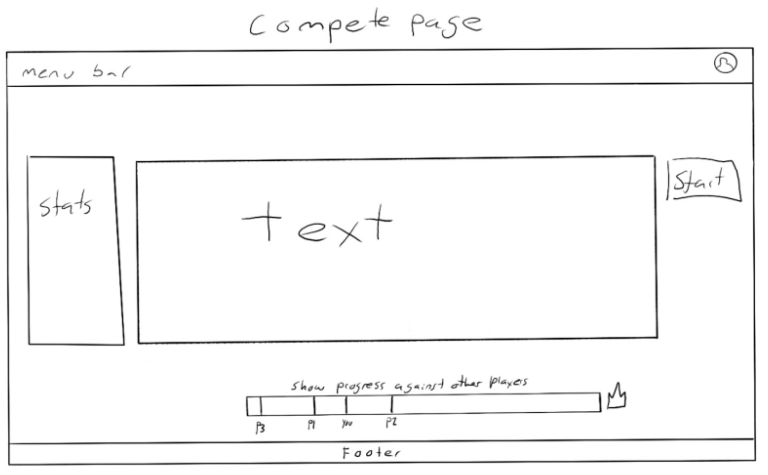 Compete page
menu bar
stats
text
Start
show progress against other players
P3 P1 you P2
Footer